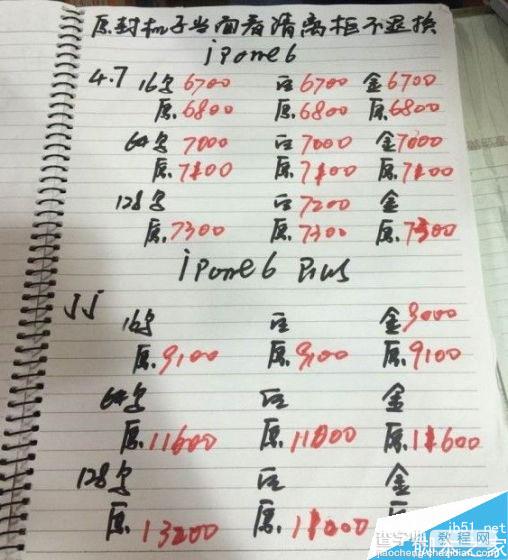 原封机子当面看清离柜不退换
iPone6
4.7 16字6700 白6700 金6700
原.6800 原.6800 原.6800
64字 7000 白7000 金7000
原.7100 原.7100 原.7100
128字 白7200 金
原.7300 原.7300 原.7300
iPone6 Plus
16字 白 金9000
原.9100 原.9100 原.9100
64字 白 金
原.11600 原.11800 原.11600
128字 白 金
原.13200 原.
jb51.net
查字典 教程网
jiaocheng.chazidian.com